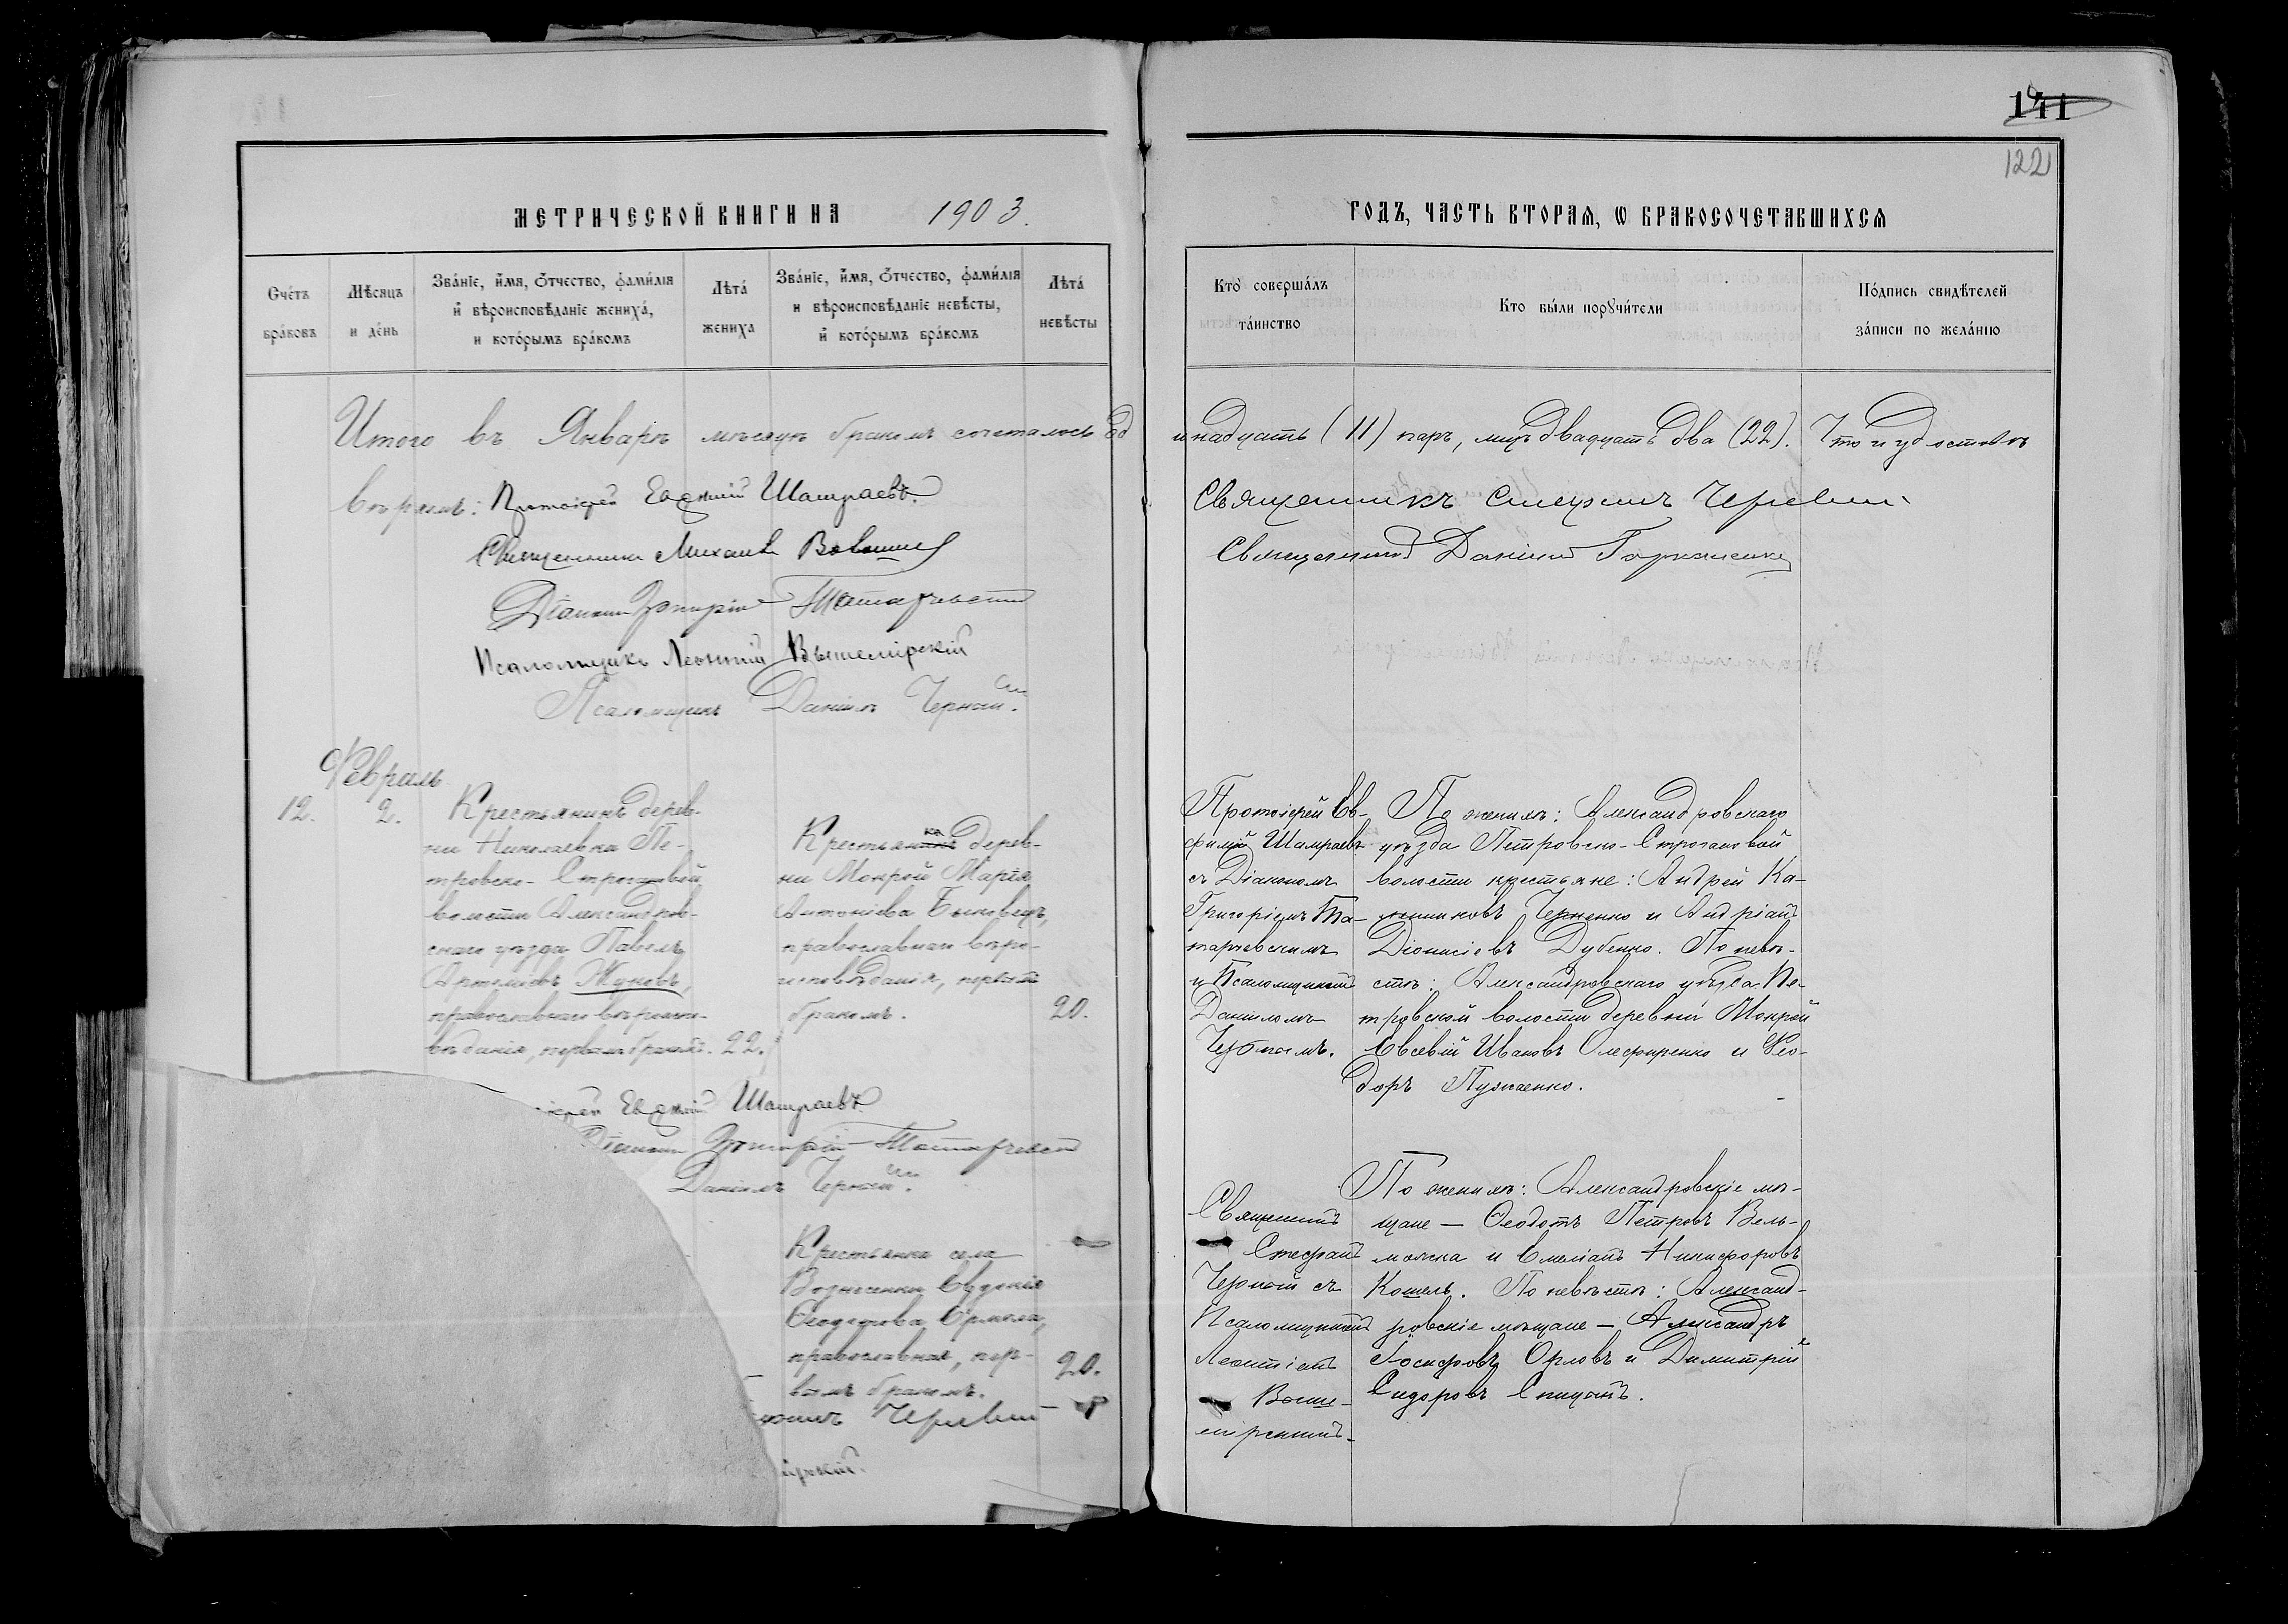 141
122
МЕТРИЧЕСКОЙ КНИГИ НА 1903.
ГОДЪ, ЧАСТЬ ВТОРАЯ, Ѡ БРАКОСОЧЕТАВШИХСЯ
Счéтъ брáковъ
Мѣсяцъ и дéнь
Звáніе, и́мя, Ѻтчество, фами́лія и́ вѣроисповѣ́даніе женихá, и кото́рымъ брáкомъ
Лѣтá жениха
Звáніе, и́мя, Ѻтчество, фами́лія и вѣроисповѣ́даніе невѣ́сты, и́ кото́рымъ брáкомъ
Лѣтá невѣ́сты
Кто̀ совершáлъ тáинство
Кто бы́ли порꙋчи́тели
По́дпись свидѣ́телей зáписи по желáнію
Итого въ Январѣ мѣсяцѣ бракомъ сочеталось од
инадцать (11) паръ, лицъ двадцать два (22). Что и удостов
вѣряемъ: Протоіерей Евфимій Шамраевъ.
Священникъ Михаилъ
Діаконъ Григорій Татарчевскій
Псаломщикъ Леонтій Вышемірскій
Псаломщикъ Даніилъ Черный.
Священникъ Стефанъ
Священникъ Даніилъ
Февраль
12.
2.
Крестьянинъ дерев-
ни Николаевки Пе-
тровско-Строгановой
волости Александров-
скаго уѣзда Павелъ
Артеміевъ Жуковъ,
православнаго вѣроиспо-
вѣданія, первымъ бракомъ. 22.
Крестьянка дерев-
ни Мокрой Марія
Антоніева Быковецъ,
православнаго вѣро-
исповѣданія, первымъ
бракомъ.
20.
Протоіерей Ев-
фимій Шамраевъ
съ Діакономъ
Григоріемъ Та-
тарчевскимъ
и Псаломщикомъ
Даниломъ
Чернымъ.
По женихѣ: Александровскаго
уѣзда Петровско-Строгановой
волости крестьяне: Андрей Ка-
линиковъ Черненко и Андріанъ
Діонисіевъ Дубенко. По невѣ-
стѣ: Александровскаго уѣзда Пе-
тровской волости деревни Мокрой
Евсевій Ивановъ Олефиренко и Фео-
доръ Пужаенко.
Евфимій Шамраевъ
Діаконъ Григорій Татарчевскій
Даніилъ Черный.
Крестьянка села
Вознесенки Евдокія
Ѳеодотова Ермола,
православная, пер-
вымъ бракомъ.
20.
Священникъ
Стефанъ
Черный съ
Псаломщикомъ
Леонтіемъ
Выше-
мірскимъ
По женихѣ: Александровскіе мѣ-
щане — Ѳеодотъ Петровъ Вель-
можка и Емеліанъ Никифоровъ
Кошель. По невѣстѣ: Александ-
ровскіе мѣщане — Александръ
Іосифовъ Орловъ и Димитрій
Сидоровъ